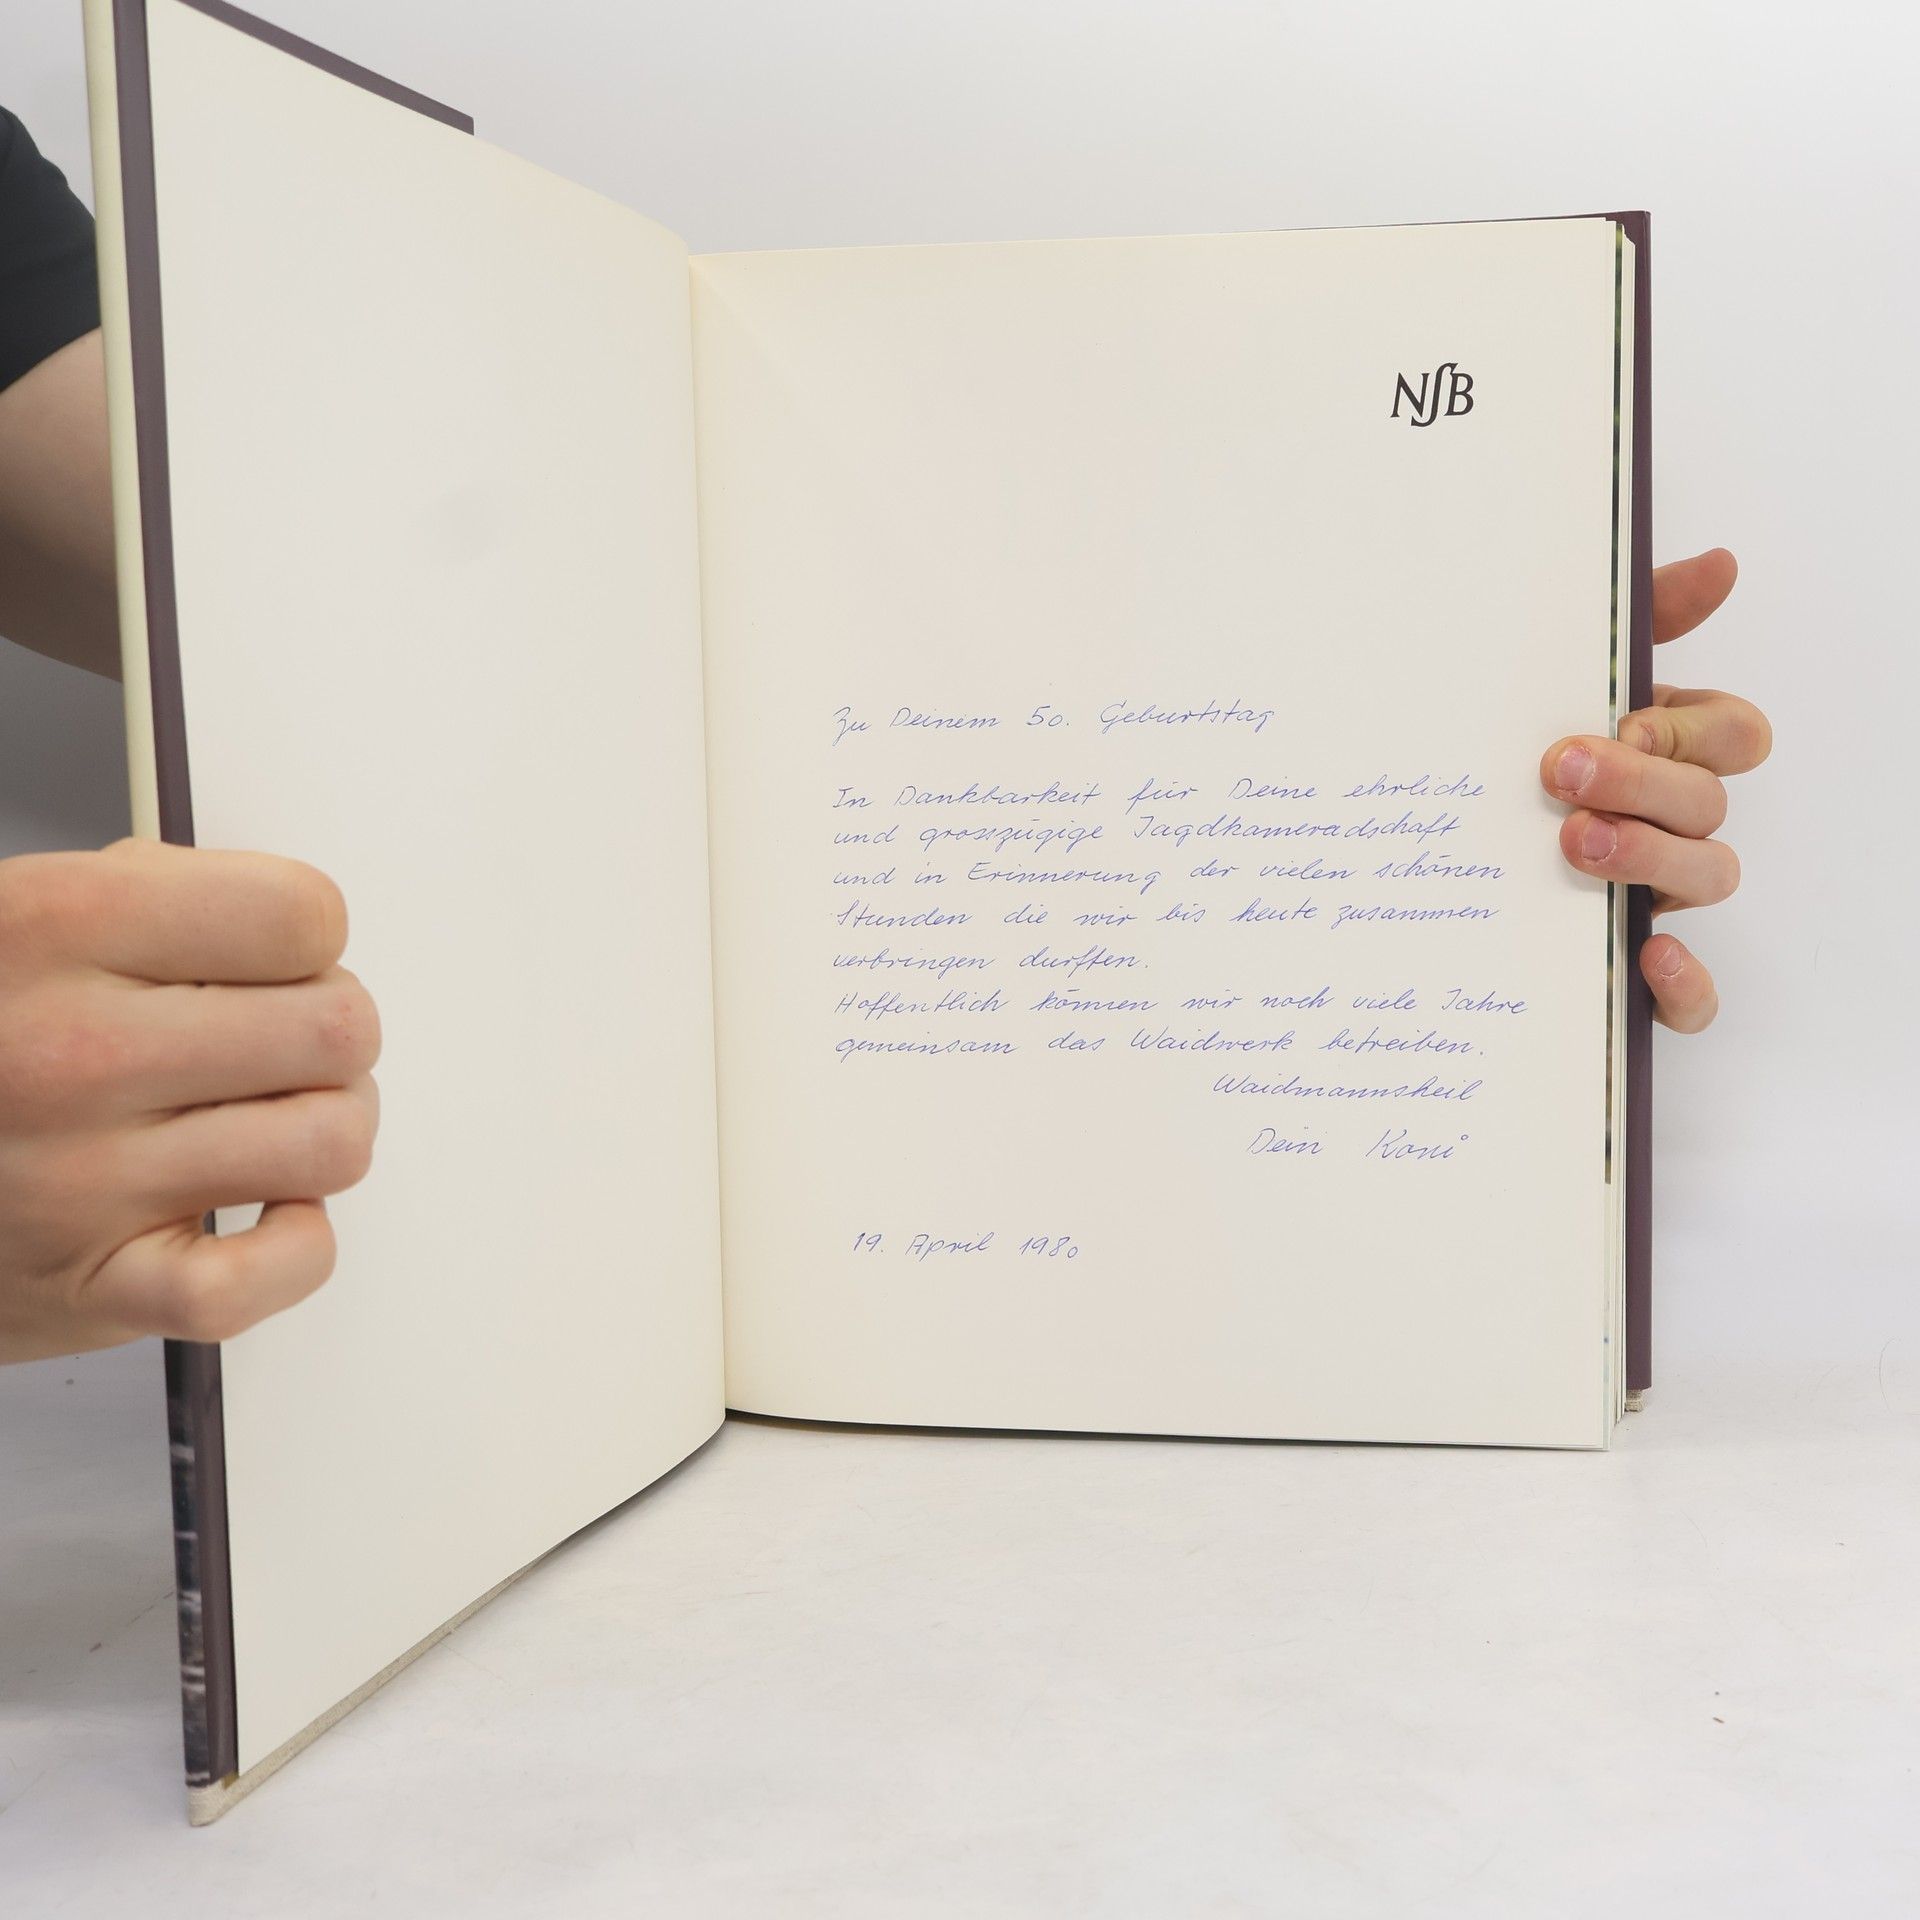 NSB
Zu Deinem 50. Geburtstag
In Dankbarkeit für Deine ehrliche
und grosszügige Jagdkameradschaft
und in Erinnerung der vielen schönen
Stunden die wir bis heute zusammen
verbringen durften.
Hoffentlich können wir noch viele Jahre
gemeinsam das Waidwerk betreiben.
Waidmannsheil
Dein Koni
19. April 1980